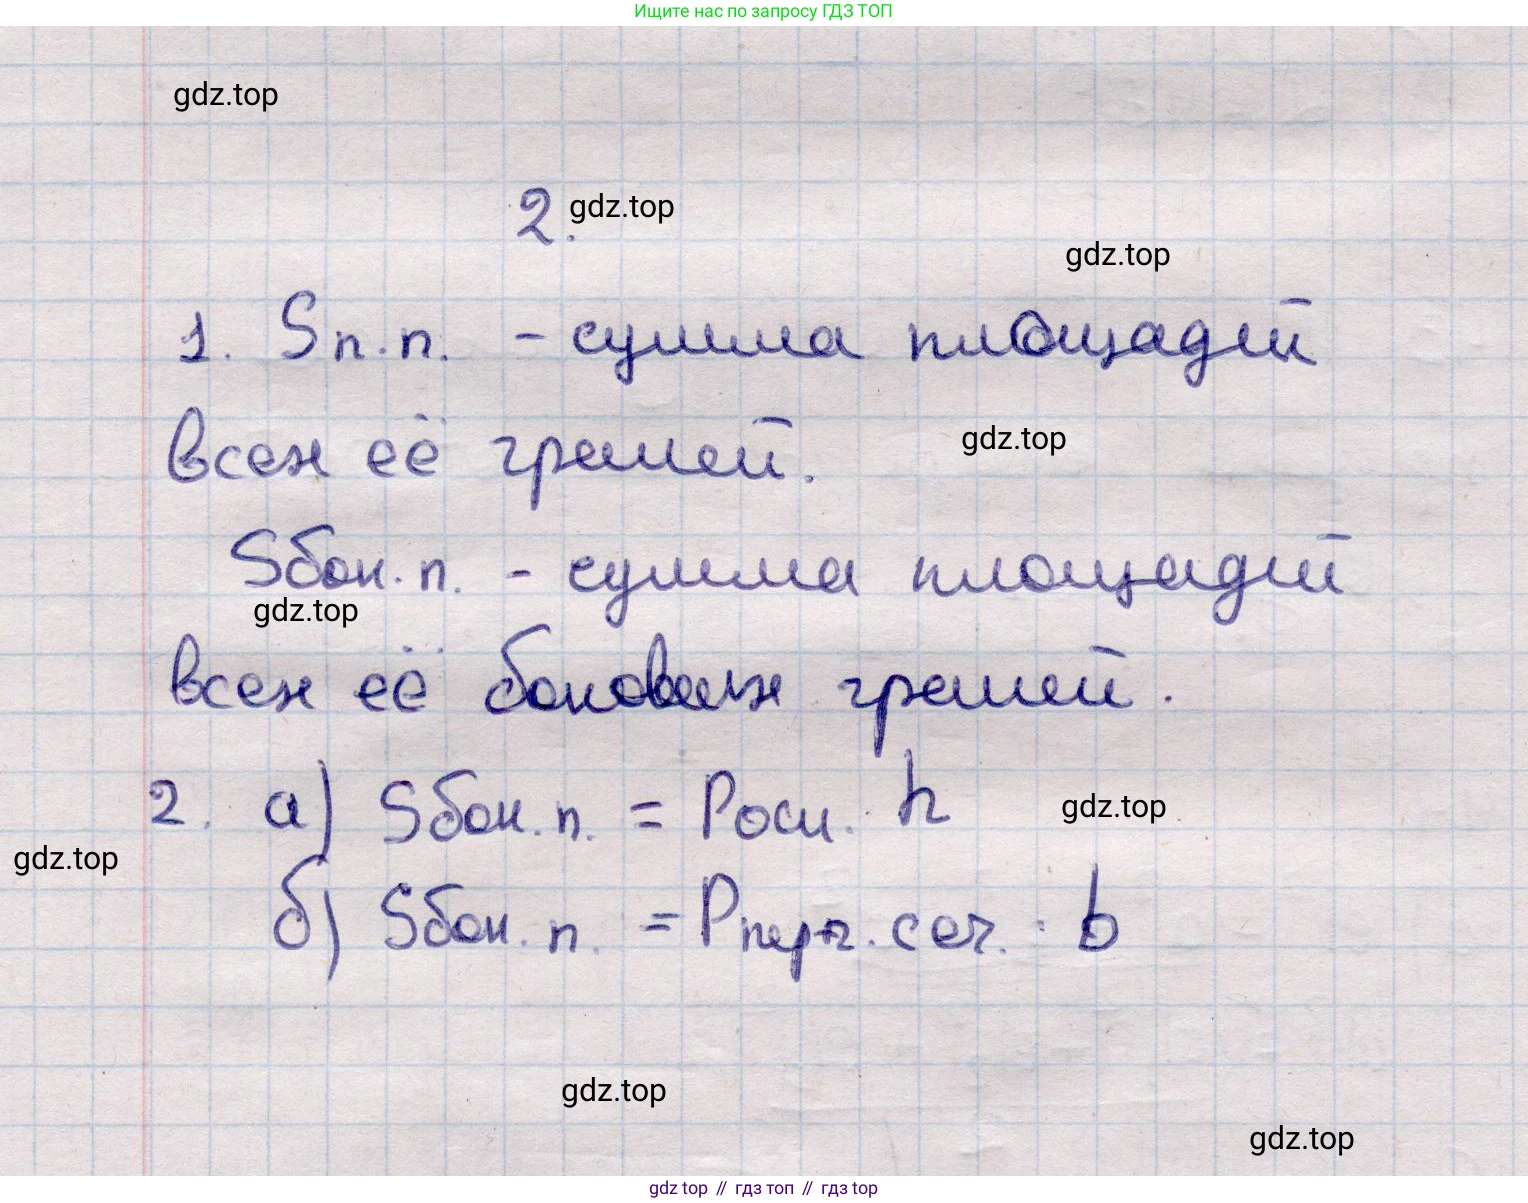 Ищите нас по запросу ГДЗ ТОП
gdz.top
2.
gdz.top
gdz.top
1. Sп.п. - сумма площадей
всех её граней.
gdz.top
Sбок.п. - сумма площадей
gdz.top
всех её боковых граней.
2. а) Sбок.п. = Pосн. · h
gdz.top
gdz.top
б) Sбок.п. = Pперп.сеч. · b
gdz.top
gdz.top
gdz top // гдз топ // гдз top